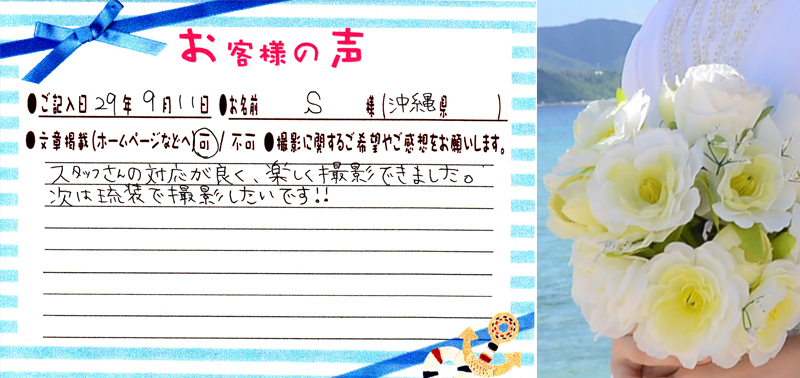 お客様の声
●ご記入日 29年 9月 11日 ●お名前 S 様(沖縄県 )
●文章掲載(ホームページなどへ 可/不可 ●撮影に関するご希望やご感想をお願いします。
スタッフさんの対応が良く、楽しく撮影できました。
次は琉装で撮影したいです!!